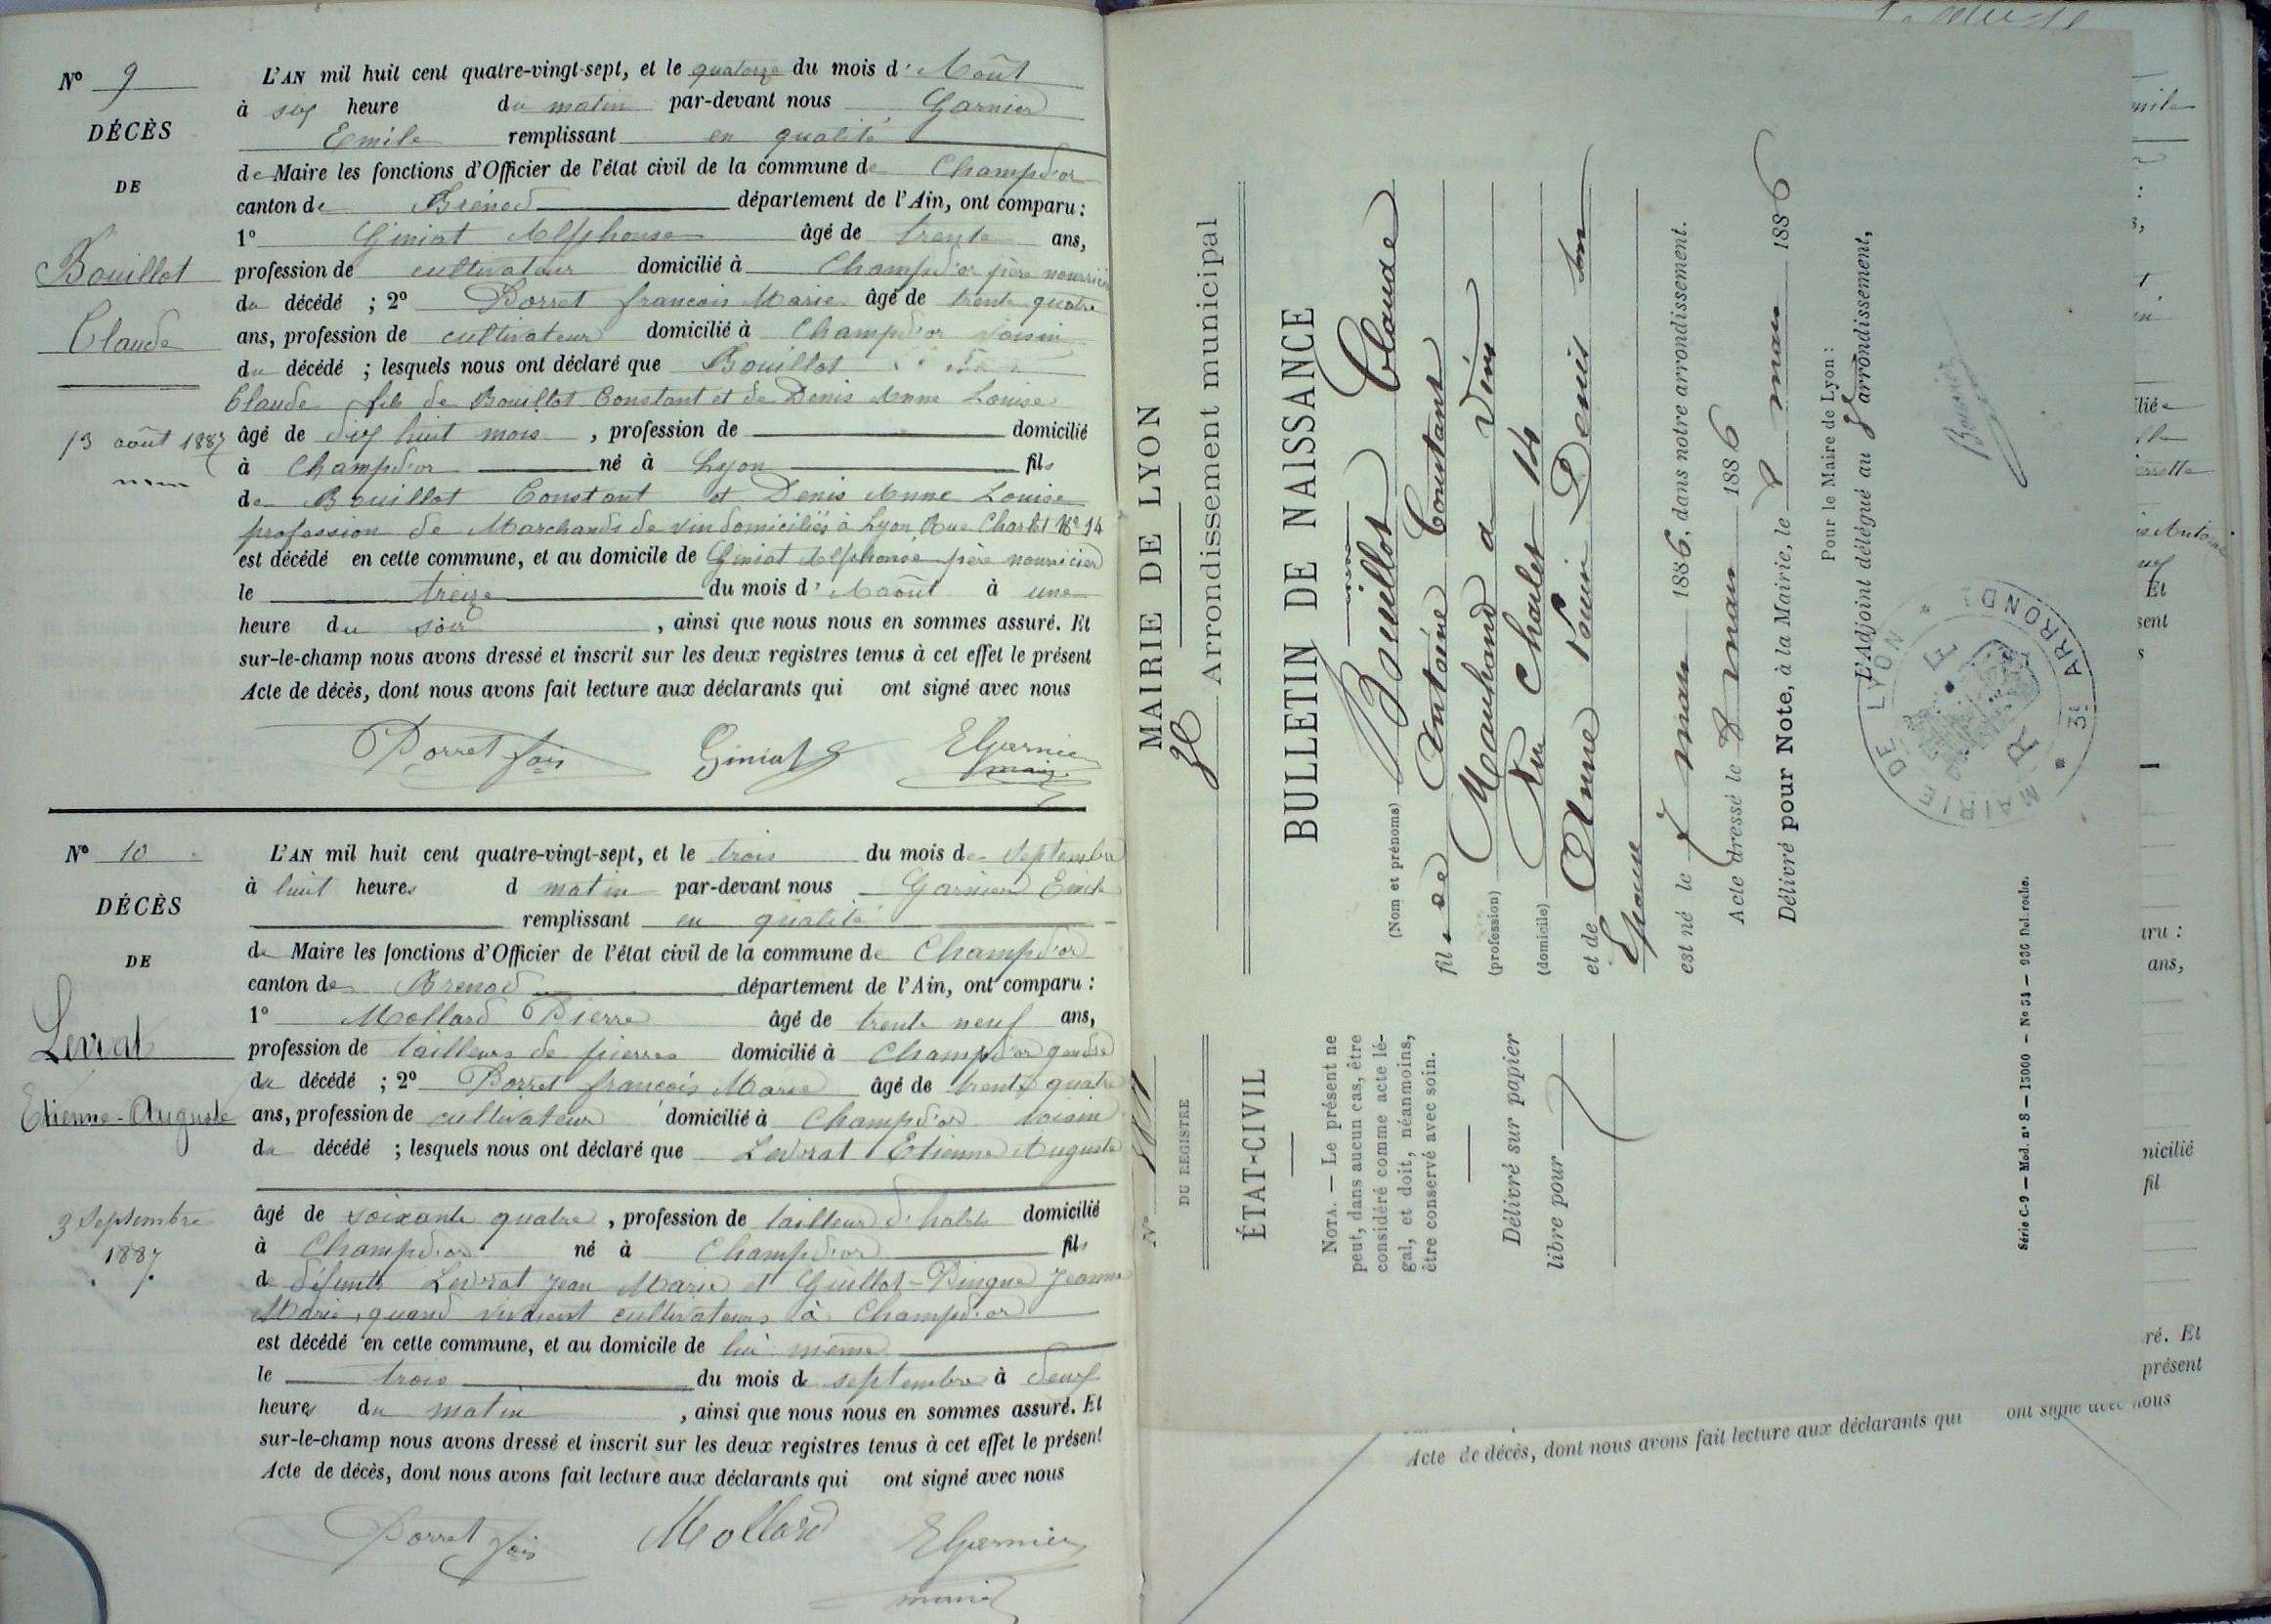 N° 9
DÉCÈS
DE
Bouillot
Claude
13 août 1887
L'AN mil huit cent quatre-vingt-sept, et le quatorze du mois d' Août
à six heure du matin par-devant nous Garnier
Emile remplissant en qualité
de Maire les fonctions d'Officier de l'état civil de la commune de Champd'or
canton de Brénod département de l'Ain, ont comparu :
1° Giniat Alphonse âgé de trente ans,
profession de cultivateur domicilié à Champd'or père nourricier
du décédé ; 2° Borret francois Marie âgé de trente quatre
ans, profession de cultivateur domicilié à Champd'or voisin
du décédé ; lesquels nous ont déclaré que Bouillot
Claude fils de Bouillot Constant et de Denis Anne Louise
âgé de dix huit mois , profession de domicilié
à Champd'or né à Lyon fils
de Bouillot Constant et Denis Anne Louise
profession de Marchands de vin domiciliés à Lyon Rue Charlet N° 14
est décédé en cette commune, et au domicile de Giniat Alphonse père nourricier
le treize du mois d' Août à une
heure du soir , ainsi que nous nous en sommes assuré. Et
sur-le-champ nous avons dressé et inscrit sur les deux registres tenus à cet effet le présent
Acte de décès, dont nous avons fait lecture aux déclarants qui ont signé avec nous
Borret fois Giniat EGarnier
maire
N° 10
DÉCÈS
DE
Levrat
Etienne-Auguste
3 Septembre
1887
L'AN mil huit cent quatre-vingt-sept, et le trois du mois de septembre
à huit heures d matin par-devant nous Garnier Emile
remplissant en qualité
de Maire les fonctions d'Officier de l'état civil de la commune de Champd'or
canton de Brenod département de l'Ain, ont comparu :
1° Mollard Pierre âgé de trente neuf ans,
profession de tailleurs de pierres domicilié à Champd'or gendre
du décédé ; 2° Borret francois Marie âgé de trente quatre
ans, profession de cultivateur domicilié à Champd'or voisin
du décédé ; lesquels nous ont déclaré que Levrat Etienne Auguste
âgé de soixante quatre , profession de tailleur d'habits domicilié
à Champd'or né à Champd'or fils
de défunts Levrat Jean Marie et Guillot-Pingue Jeanne
Marie, quand vivaient cultivateurs à Champd'or
est décédé en cette commune, et au domicile de lui même
le trois du mois de septembre à deux
heures du matin , ainsi que nous nous en sommes assuré. Et
sur-le-champ nous avons dressé et inscrit sur les deux registres tenus à cet effet le présent
Acte de décès, dont nous avons fait lecture aux déclarants qui ont signé avec nous
Borret fois Mollard EGarnier
maire
MAIRIE DE LYON
3e Arrondissement municipal
BULLETIN DE NAISSANCE
(Nom et prénoms) Bouillot Claude
fil de Antoine Constant
(profession) Marchand de Vin
(domicile) Rue Charlet 14
et de Anne Louise Denis son
Epouse
est né le 7 mars 1886, dans notre arrondissement.
Acte dressé le 8 mars 1886
Délivré pour Note, à la Mairie, le 8 mars 1886
Pour le Maire de Lyon :
L'Adjoint délégué au 3e arrondissement,
MAIRIE DE LYON
* 3E ARROND. *
R F
N°
DU REGISTRE
ÉTAT-CIVIL
NOTA. — Le présent ne
peut, dans aucun cas, être
considéré comme acte lé-
gal, et doit, néanmoins,
être conservé avec soin.
Délivré sur papier
libre pour
Série C-9 — Mod. n° 8 — 15000 — No 54 — 936 Delaroche.
uru :
ans,
nicilié
fil
ré. Et
présent
Acte de décès, dont nous avons fait lecture aux déclarants qui ont signé avec nous